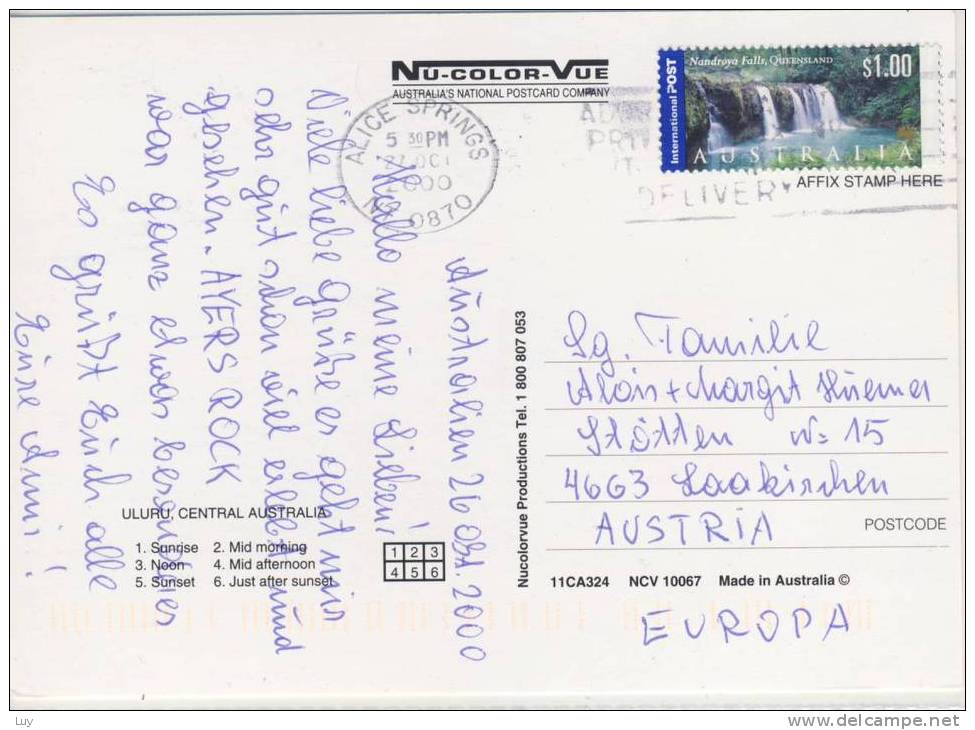 NU-COLOR-VUE
AUSTRALIA'S NATIONAL POSTCARD COMPANY
ALICE SPRINGS
5 30 PM
27 OCT
2000
0870
DELIVERY
Nandroya Falls, QUEENSLAND
$1.00
International POST
AUSTRALIA
AFFIX STAMP HERE
Australien 26 Okt. 2000
Hallo meine Lieben!
Viele liebe Grüße es geht mir
sehr gut schon viel erlebt und
gesehen. AYERS ROCK
war ganz etwas besonderes
Es grüßt Euch alle
Eure Anni!
ULURU, CENTRAL AUSTRALIA
1. Sunrise 2. Mid morning
3. Noon 4. Mid afternoon
5. Sunset 6. Just after sunset
1 2 3
4 5 6
Nucolorvue Productions Tel. 1 800 807 053
Sg. Familie
Alois + Margit
Stötten N= 15
4663 Laakirchen
AUSTRIA
POSTCODE
11CA324 NCV 10067 Made in Australia ©
EUROPA
Luy
www.delcampe.net